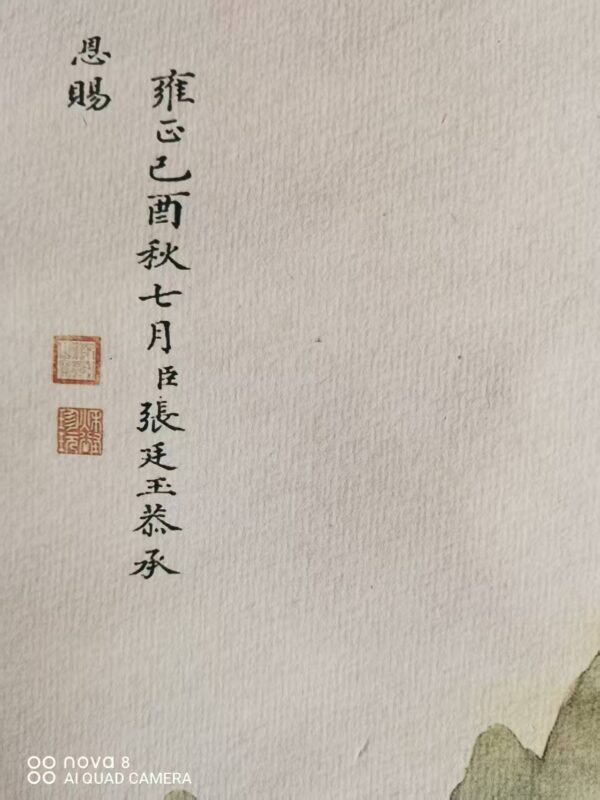 雍正己酉秋七月臣張廷玉恭承
恩賜
nova 8
AI QUAD CAMERA